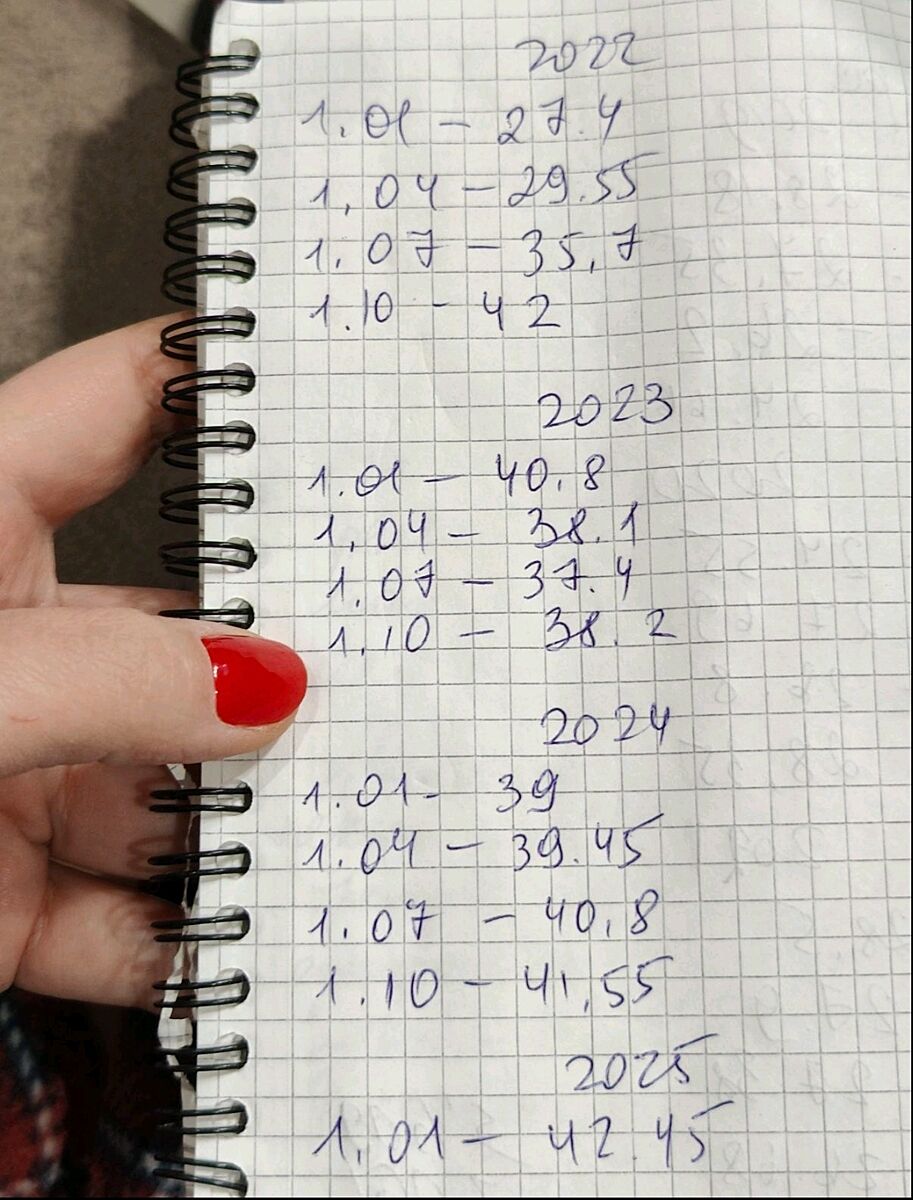 2022
1.01 - 27.4
1.04 - 29.55
1.07 - 35,7
1.10 - 42
2023
1.01 - 40.8
1.04 - 38.1
1.07 - 37.4
1.10 - 38.2
2024
1.01 - 39
1.04 - 39.45
1.07 - 40.8
1.10 - 41,55
2025
1.01 - 42.45